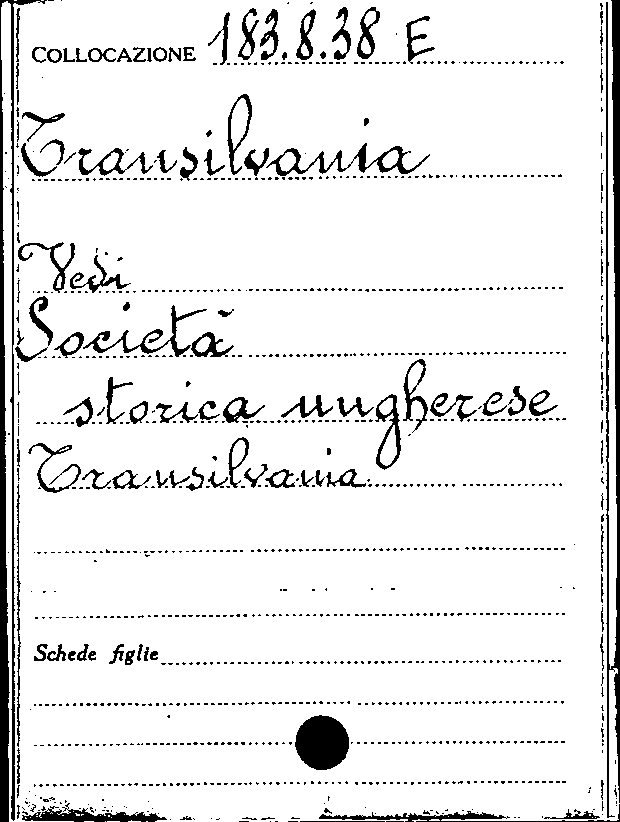 COLLOCAZIONE 183.8.38 E
Transilvania
Vedi
Società
storica ungherese
Transilvania
Schede figlie